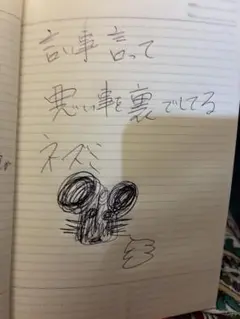 言い事言って
悪い事を裏でしてる
ネズミ